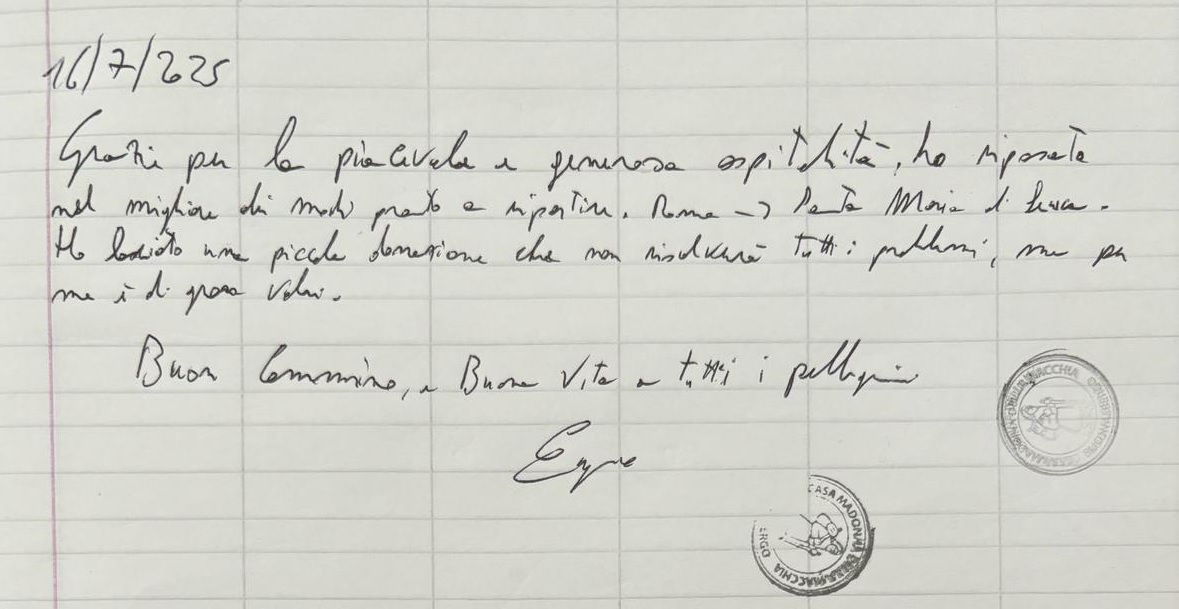 16/7/2025
Grazie per la piacevole e generosa ospitalità, ho riposato
nel migliore dei modi pronto a ripartire. Roma -> Santa Maria di Leuca.
Ho lasciato una piccola donazione che non risolverà tutti i problemi, ma per
me è di gran valore.
Buon Cammino, e Buona Vita a tutti i pellegrini
CASA MADONNA DELLA MACCHIA